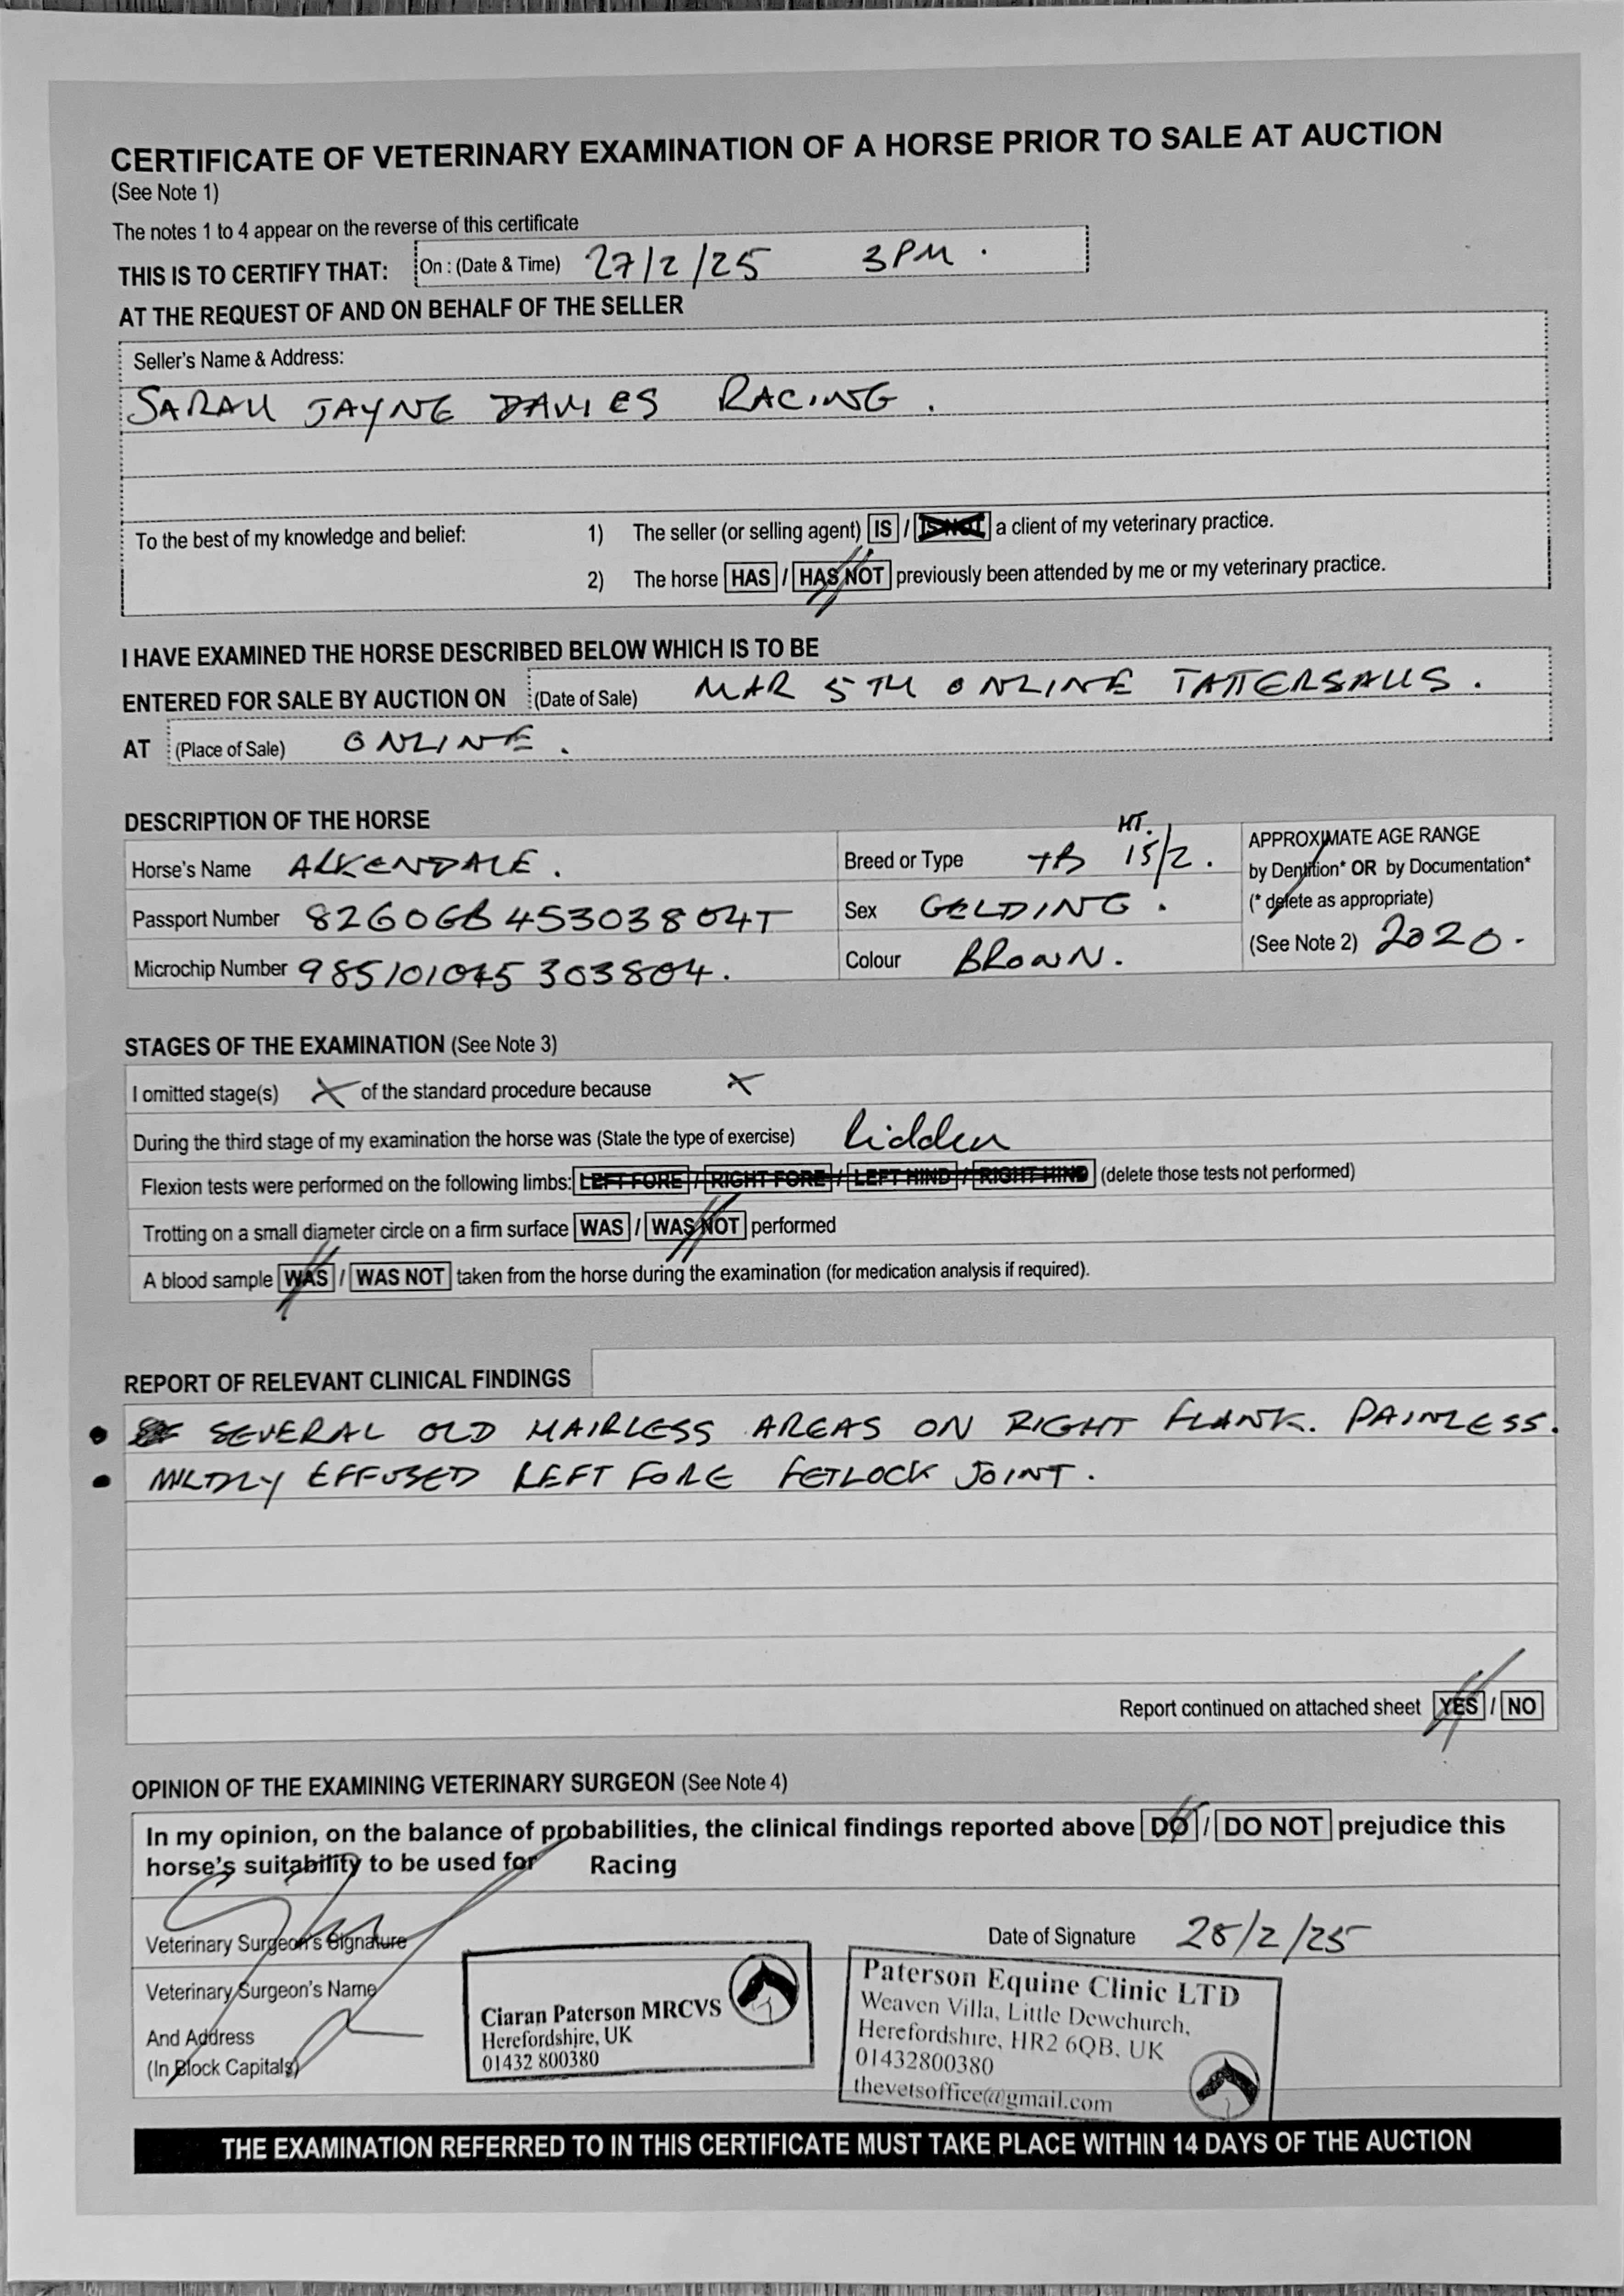 CERTIFICATE OF VETERINARY EXAMINATION OF A HORSE PRIOR TO SALE AT AUCTION
(See Note 1)
The notes 1 to 4 appear on the reverse of this certificate
THIS IS TO CERTIFY THAT: On : (Date & Time) 27/2/25 3PM .
AT THE REQUEST OF AND ON BEHALF OF THE SELLER
Seller's Name & Address:
SARAH JAYNE DAVIES RACING .
To the best of my knowledge and belief: 1) The seller (or selling agent) IS / IS NOT a client of my veterinary practice.
2) The horse HAS / HAS NOT previously been attended by me or my veterinary practice.
I HAVE EXAMINED THE HORSE DESCRIBED BELOW WHICH IS TO BE
ENTERED FOR SALE BY AUCTION ON (Date of Sale) MAR 5TH ONLINE TATTERSALLS .
AT (Place of Sale) ONLINE .
DESCRIPTION OF THE HORSE
Horse's Name ALKENDALE . Breed or Type TB HT. 15/2 . APPROXIMATE AGE RANGE
by Dentition* OR by Documentation*
Passport Number 8260GB45303804T Sex GELDING . (* delete as appropriate)
Microchip Number 985101045303804. Colour BROWN. (See Note 2) 2020.
STAGES OF THE EXAMINATION (See Note 3)
I omitted stage(s) X of the standard procedure because X
During the third stage of my examination the horse was (State the type of exercise) Ridden
Flexion tests were performed on the following limbs: LEFT FORE / RIGHT FORE / LEFT HIND / RIGHT HIND (delete those tests not performed)
Trotting on a small diameter circle on a firm surface WAS / WAS NOT performed
A blood sample WAS / WAS NOT taken from the horse during the examination (for medication analysis if required).
REPORT OF RELEVANT CLINICAL FINDINGS
• SEVERAL OLD HAIRLESS AREAS ON RIGHT FLANK. PAINLESS.
• MILDLY EFFUSED LEFT FORE FETLOCK JOINT.
Report continued on attached sheet YES / NO
OPINION OF THE EXAMINING VETERINARY SURGEON (See Note 4)
In my opinion, on the balance of probabilities, the clinical findings reported above DO / DO NOT prejudice this
horse's suitability to be used for Racing
Veterinary Surgeon's Signature Date of Signature 28/2/25
Veterinary Surgeon's Name
And Address
(In Block Capitals)
Ciaran Paterson MRCVS
Herefordshire, UK
01432 800380
Paterson Equine Clinic LTD
Weaven Villa, Little Dewchurch,
Herefordshire, HR2 6QB, UK
01432800380
thevetsoffice@gmail.com
THE EXAMINATION REFERRED TO IN THIS CERTIFICATE MUST TAKE PLACE WITHIN 14 DAYS OF THE AUCTION